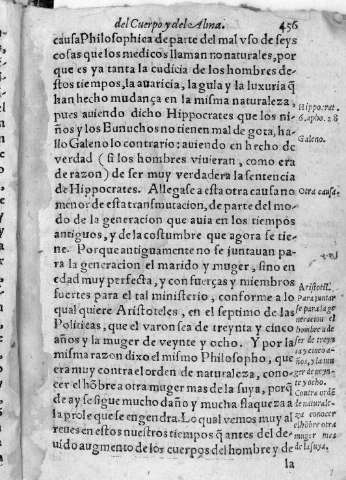 del Cuerpo y del Alma. 456
causa Philosophica de parte del mal vso de seys
cosas que los medicos llaman no naturales, por
que es ya tanta la cudicia de los hombres de-
stos tiempos, la auaricia, la gula y la luxuria q̃
han hecho mudança en la misma naturaleza,
pues auiendo dicho Hippocrates que los ni-
ños y los Eunuchos no tienen mal de gota, ha-
llo Galeno lo contrario: auiendo en hecho de
verdad (si los hombres viuieran, como era
de razon) de ser muy verdadera la sentencia
de Hippocrates. Allegase a esta otra causa no
menor de esta transmutacion, de parte del mo-
do de la generacion que auia en los tiempos
antiguos, y de la costumbre que agora se tie-
ne. Porque antiguamente no se juntauan pa-
ra la generacion el marido y muger, sino en
edad muy perfesta, y con fuerças y miembros
fuertes para el tal ministerio, conforme a lo
qual quiere Aristoteles, en el septimo de las
Politicas, que el varon sea de treynta y cinco
años y la muger de veynte y ocho. Y por la
misma razon dixo el mismo Philosopho, que
era muy contra el orden de naturaleza, cono-
cer el hõbre a otra muger mas de la suya, porq̃
de ay se sigue mucho daño y mucha flaqueza a
la prole que se engendra. Lo qual vemos muy al
reues en estos nuestros tiempos q̃ antes del de-
uido augmento de los cuerpos del hombre y de
la
Hippocrat.
6. apho. 28
Galeno.
Otra causa.
Aristotil.
Para juntar
se para la ge
neracion el
hombre a de
ser de treyn
ta y cinco a-
ños, y la mu
ger de veyn-
te y ocho.
Contra ordẽ
de naturale-
za conocer
el hõbre otra
muger mas
de la suya.